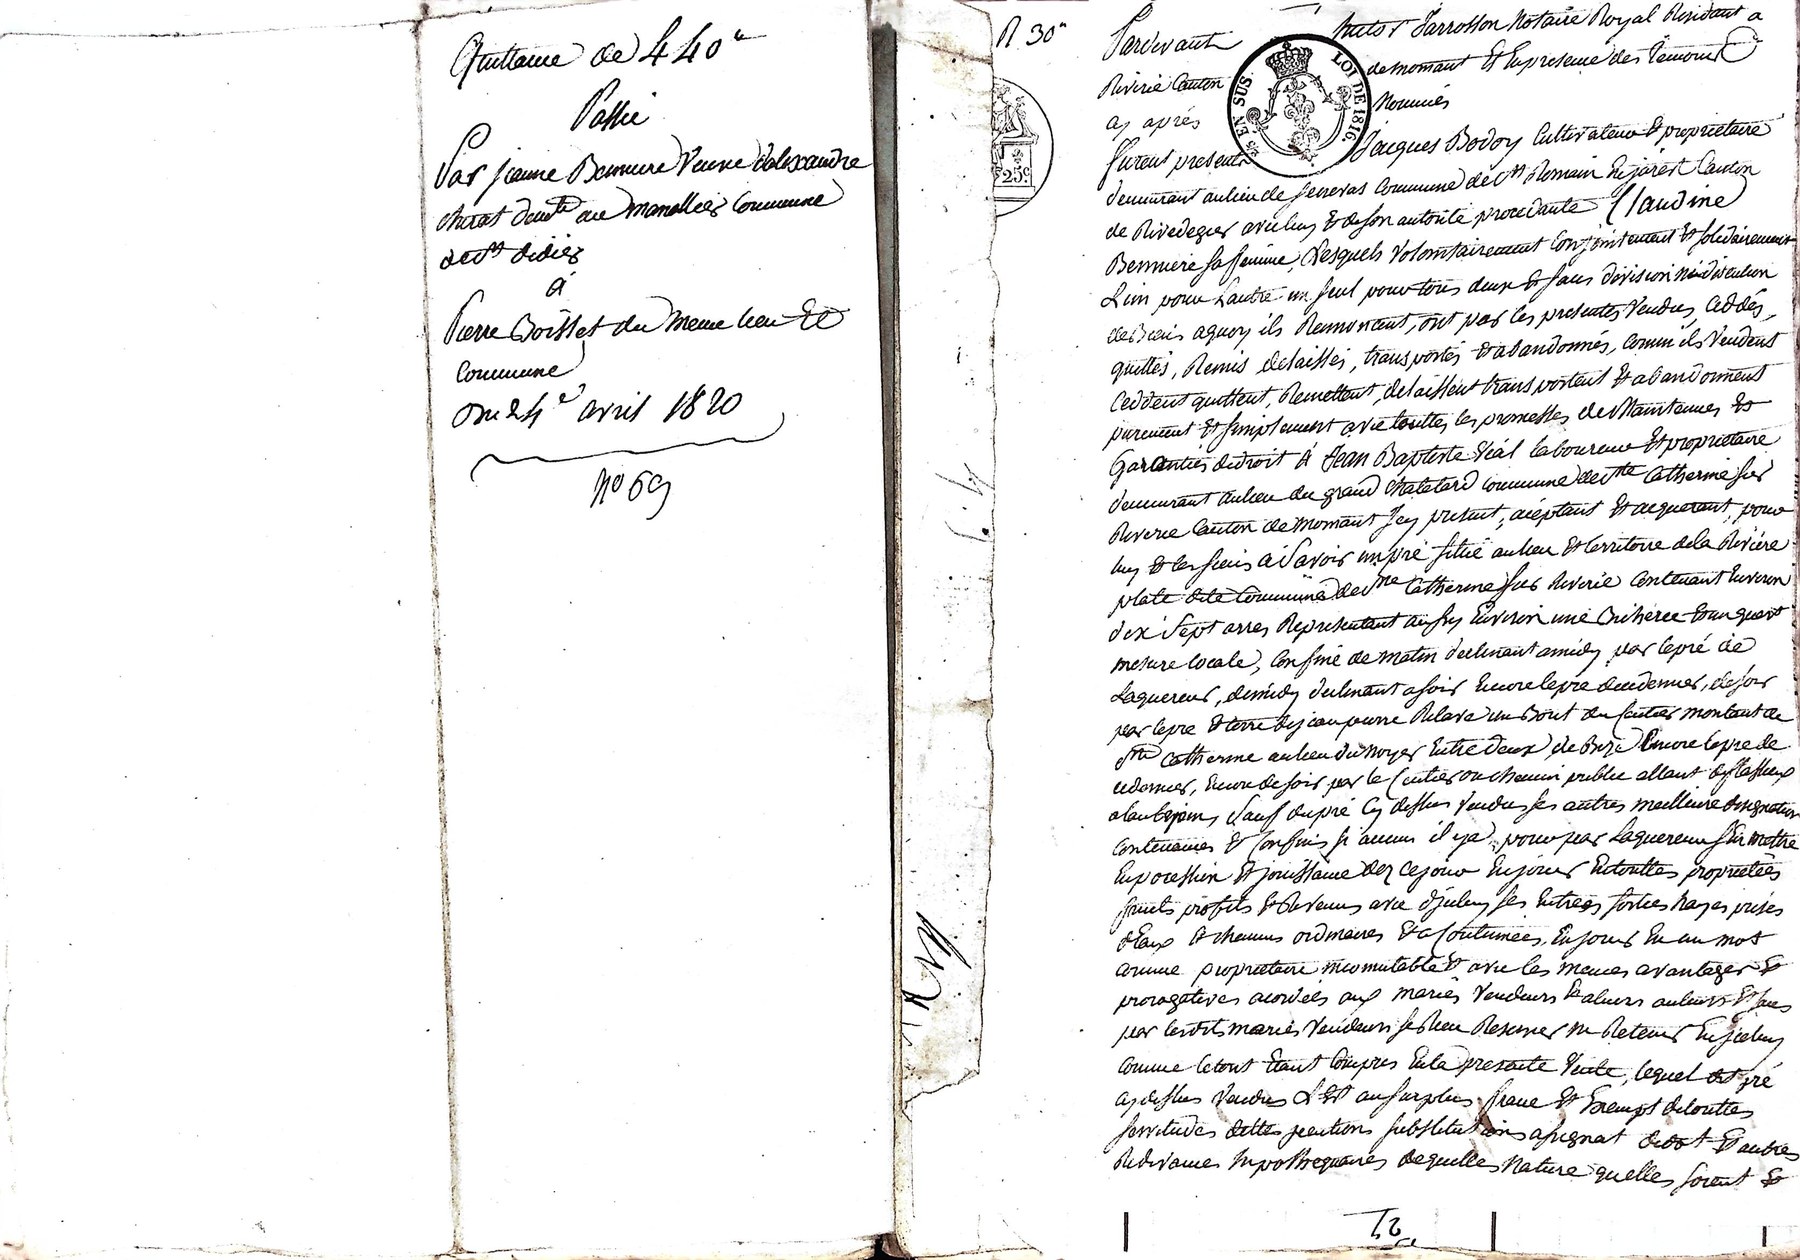 Quittance de 440"
Passée
Par jeanne Bennière Veuve d'alexandre
chirat demte au manellier Commune
de st didier
à
Pierre Boisset du meme lieu Et
Commune
Du 24e avril 1820
No 69
R 30"
25c
EN SUS
LOI DE 1816
Pardevant Jarrosson Notaire Royal Residant a
Riverie Canton de mornant Et En presence des temoins
Cy après Nommés
furent presents Jacques Bodoy Cultivateur & proprietaire
demeurant au lieu de commune de st Romain En jarêt Canton
de Rivedegier avec luy & de son autorité procedante Claudine
Bennière sa femme, Lesquels volontairement Conjointement & solidairement
L'un pour L'autre un seul pour tous deux & sans division ni discution
de Biens aquoy ils Renoncent, ont par les presentes vendus, Ceddés,
quittés, Remis delaissés, transportés & abandonnés, comm'ils Vendent
Ceddent quittent, Remettent, delaissent transportent & abandonnent
purement & simplement avec touttes les promesses de Maintenues &
Garanties de droit à Jean Baptiste Vial laboureur Et proprietaire
demeurant au lieu du grand Chatelard commune de ste Catherine sur
Riverie Canton de mornant Jcy present, aceptant & acquerant, pour
luy & les siens a Savoir un pré situé au lieu & territoire de la Rivière
plate dite Commune de ste Catherine sur Riverie Contenant Environ
dix Sept arres Representant aussy Environ une Bicherée & un quart
mesure locale, Confiné de matin declinant a midy par le pré de
Laquereur, de midy declinant a soir Encore le pré du dernier, de soir
par le pré & terre de jean pierre Relave un Bout du sentier montant de
ste Catherine au lieu du noyer Entre deux, de Bize Encore le pré de
ce dernier, Encore de soir par le sentier ou chemin public allant
Sauf du pré Cy dessus Vendu ses autres meilleure designation
Contenances & Confins si aucuns il y a, pour par Laquereur s'En mettre
En possession Et jouissance dez ce jour En jouir En touttes proprietées
fruits profits & Revenus avec d'jceluy ses Entrées sorties hayes prises
d'Eaux & chemins ordinaires & acoutumées, En jouir En un mot
comme proprietaire incomutable & avec les memes avantages &
prerogatives acordées aux mariés Vendeurs & a leurs auteurs & sans
par lesdits mariés Vendeurs se Rien Reserver ni Retenir En jceluy
comme le tout Etant Compris En la presente Vente, lequel dit pré
cy dessus Vendus L'Est au surplus franc & Exempt de touttes
servitudes dettes pentions substitutions asignat de dot & autres
Redevances hypothequaires de quelles Nature quelles soient &